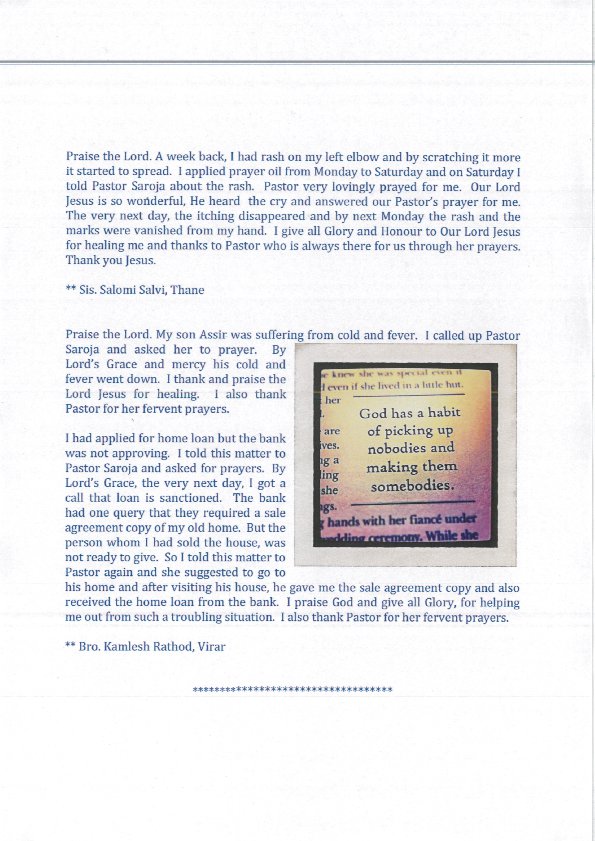 Praise the Lord. A week back, I had rash on my left elbow and by scratching it more
it started to spread. I applied prayer oil from Monday to Saturday and on Saturday I
told Pastor Saroja about the rash. Pastor very lovingly prayed for me. Our Lord
Jesus is so wonderful, He heard the cry and answered our Pastor's prayer for me.
The very next day, the itching disappeared and by next Monday the rash and the
marks were vanished from my hand. I give all Glory and Honour to Our Lord Jesus
for healing me and thanks to Pastor who is always there for us through her prayers.
Thank you Jesus.
** Sis. Salomi Salvi, Thane
Praise the Lord. My son Assir was suffering from cold and fever. I called up Pastor
Saroja and asked her to prayer. By
Lord's Grace and mercy his cold and
fever went down. I thank and praise the
Lord Jesus for healing. I also thank
Pastor for her fervent prayers.
I had applied for home loan but the bank
was not approving. I told this matter to
Pastor Saroja and asked for prayers. By
Lord's Grace, the very next day, I got a
call that loan is sanctioned. The bank
had one query that they required a sale
agreement copy of my old home. But the
person whom I had sold the house, was
not ready to give. So I told this matter to
Pastor again and she suggested to go to
his home and after visiting his house, he gave me the sale agreement copy and also
received the home loan from the bank. I praise God and give all Glory, for helping
me out from such a troubling situation. I also thank Pastor for her fervent prayers.
** Bro. Kamlesh Rathod, Virar
*************************************
knew she was special even if
even if she lived in a little hut.
her
are
ives.
ng a
ling
she
ngs.
God has a habit
of picking up
nobodies and
making them
somebodies.
hands with her fiancé under
wedding ceremony. While she